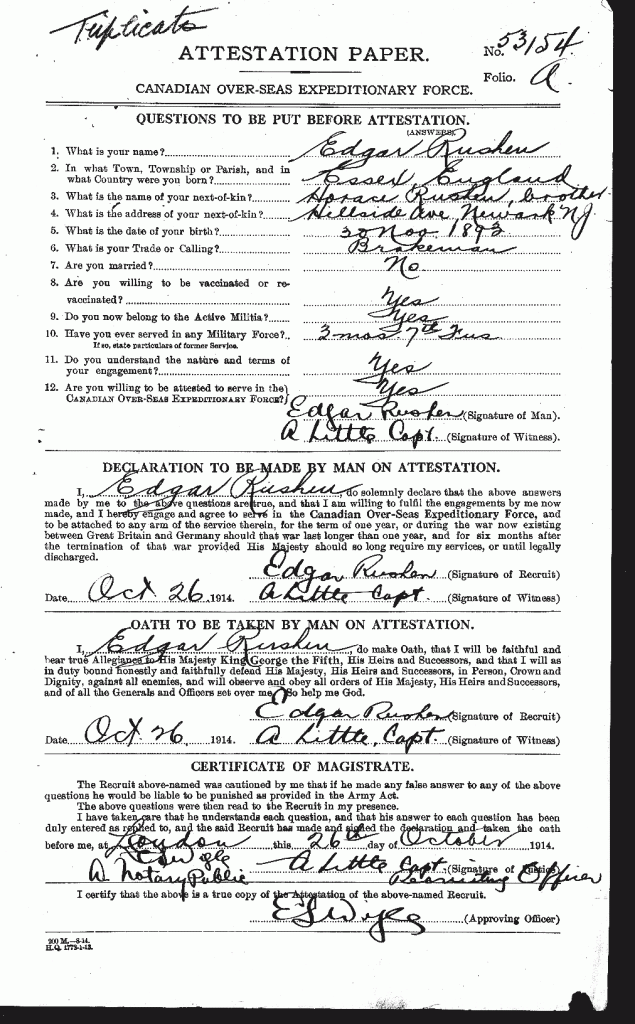 Triplicate
ATTESTATION PAPER.
No. 53154
Folio. A
CANADIAN OVER-SEAS EXPEDITIONARY FORCE.
QUESTIONS TO BE PUT BEFORE ATTESTATION.
(ANSWERS).
1. What is your name? Edgar Rushen
2. In what Town, Township or Parish, and in
what Country were you born? Essex, England
3. What is the name of your next-of-kin? Horace Rushen, brother
4. What is the address of your next-of-kin? Hillside Ave, Newark NJ
5. What is the date of your birth? 30 Nov. 1893
6. What is your Trade or Calling? Brakeman
7. Are you married? No
8. Are you willing to be vaccinated or re-
vaccinated? Yes
9. Do you now belong to the Active Militia? Yes
10. Have you ever served in any Military Force?.. 3 mos 7th Fus
If so, state particulars of former Service.
11. Do you understand the nature and terms of
your engagement? Yes
12. Are you willing to be attested to serve in the
CANADIAN OVER-SEAS EXPEDITIONARY FORCE? Yes
Edgar Rushen (Signature of Man).
A Little Capt. (Signature of Witness).
DECLARATION TO BE MADE BY MAN ON ATTESTATION.
I, Edgar Rushen, do solemnly declare that the above answers
made by me to the above questions are true, and that I am willing to fulfil the engagements by me now
made, and I hereby engage and agree to serve in the Canadian Over-Seas Expeditionary Force, and
to be attached to any arm of the service therein, for the term of one year, or during the war now existing
between Great Britain and Germany should that war last longer than one year, and for six months after
the termination of that war provided His Majesty should so long require my services, or until legally
discharged.
Edgar Rushen (Signature of Recruit)
Date Oct 26 1914. A Little Capt. (Signature of Witness)
OATH TO BE TAKEN BY MAN ON ATTESTATION.
I, Edgar Rushen, do make Oath, that I will be faithful and
bear true Allegiance to His Majesty King George the Fifth, His Heirs and Successors, and that I will as
in duty bound honestly and faithfully defend His Majesty, His Heirs and Successors, in Person, Crown and
Dignity, against all enemies, and will observe and obey all orders of His Majesty, His Heirs and Successors,
and of all the Generals and Officers set over me. So help me God.
Edgar Rushen (Signature of Recruit)
Date Oct 26 1914. A Little, Capt. (Signature of Witness)
CERTIFICATE OF MAGISTRATE.
The Recruit above-named was cautioned by me that if he made any false answer to any of the above
questions he would be liable to be punished as provided in the Army Act.
The above questions were then read to the Recruit in my presence.
I have taken care that he understands each question, and that his answer to each question has been
duly entered as replied to, and the said Recruit has made and signed the declaration and taken the oath
before me, at London this 26th day of October 1914.
A Little Capt (Signature of Justice)
A Notary Public Recruiting Officer
I certify that the above is a true copy of the Attestation of the above-named Recruit.
(Approving Officer)
200 M.—8-14.
H.Q. 1772-1-13.